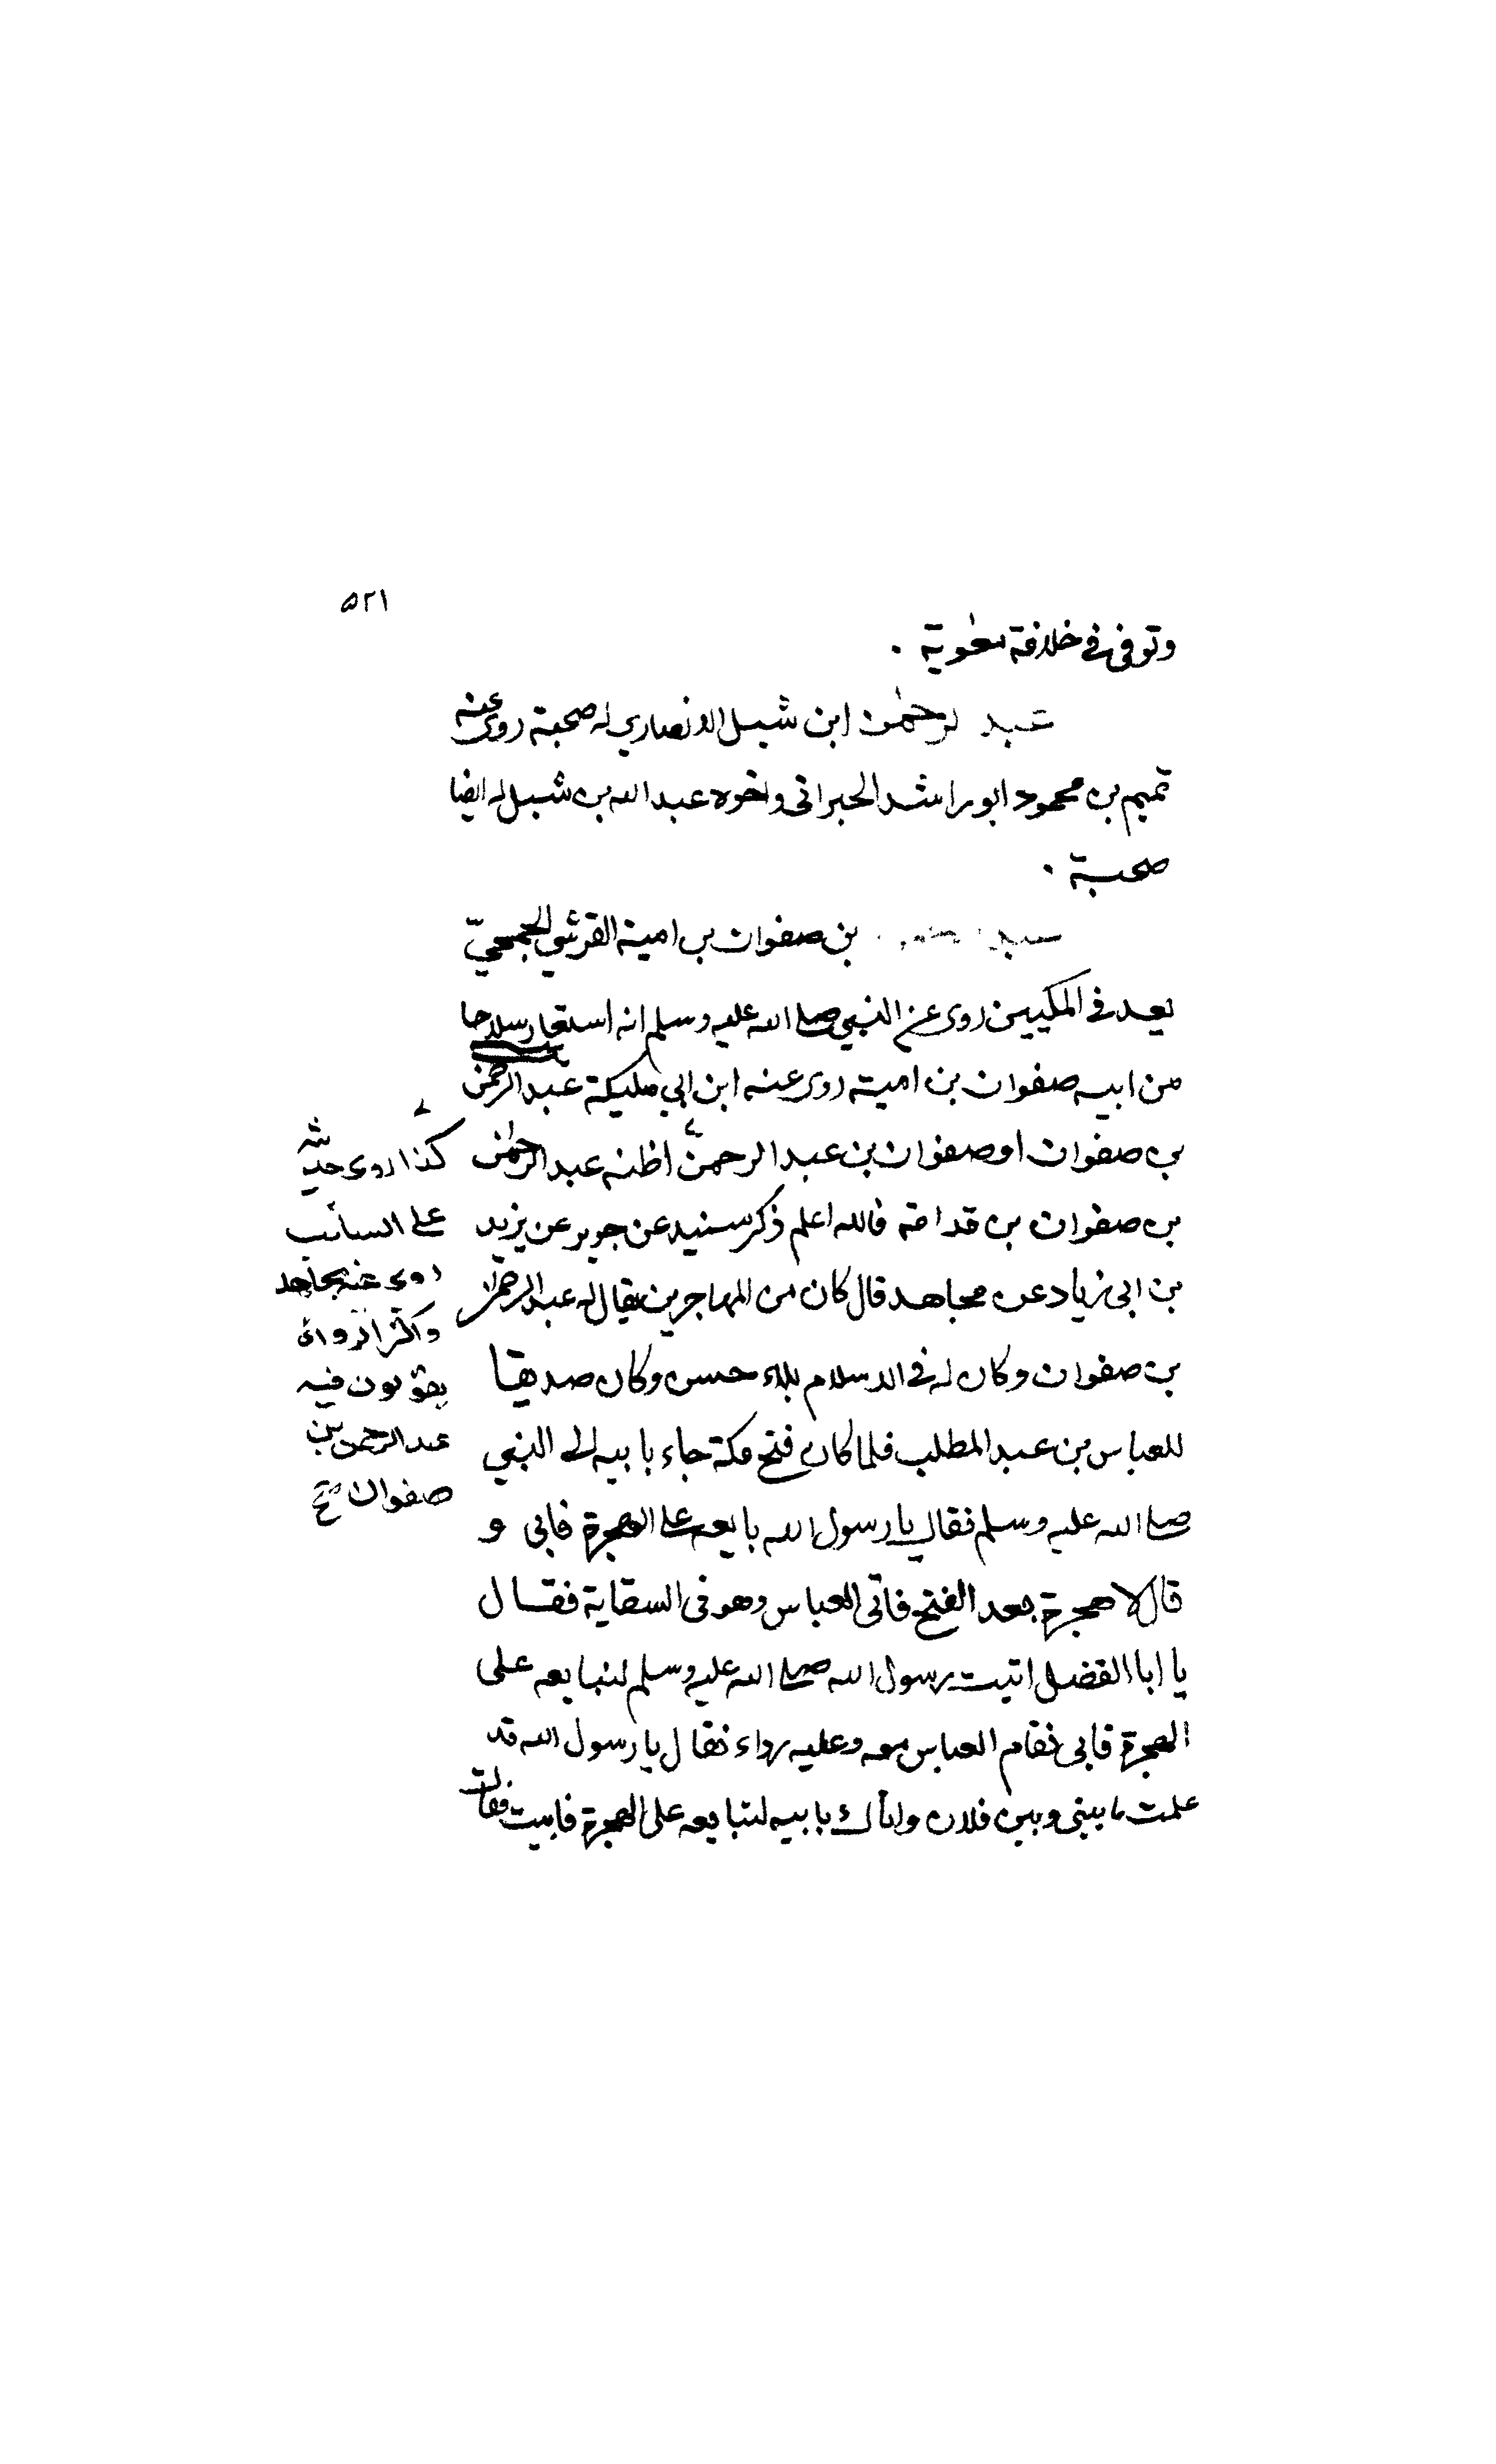 ٥٢١
وتوفى فى خلافة معٰوية .
عبد الرحمٰن ابن شبل الانصاري له صحبة روى عنه
تميم بن محمود ابو راشد الحبرانى واخوه عبد الله بن شبل له ايضا
صحبة .
بن صفوان بن امية القرشي الجمحيّ
يعد فى المكيين روى عن النبي صلى الله عليه وسلم انه استعار سلاحا
من ابيه صفوان بن امية روى عنه ابن ابي مليكة عبد الرحمن
بن صفوان او صفوان بن عبد الرحمن اظنه عبد الرحمٰن
بن صفوان بن قدامة فالله اعلم ذكر سنيد عن جرير عن يزيد
بن ابى زياد عن مجاهد قال كان من المهاجرين يقال له عبد الرحمٰن
بن صفوان وكان له فى الاسلام بلاء حسن وكان صديقا
للعباس بن عبد المطلب فلما كان فتح مكة جاء بابيه الى النبي
صلى الله عليه وسلم فقال يا رسول الله بايعه على الهجرة فابى و
قال لا هجرة بعد الفتح فاتى العباس وهو فى السقاية فقال
يا ابا الفضل اتيت رسول الله صلى الله عليه وسلم لنبايعه على
الهجرة فابى فقام العباس معه وعليه رداء فقال يا رسول الله قد
علمت ما بينى وبين فلان واتاك بابيه لتبايعه على الهجرة فابيت فقال
كذا روى حديثه
على السائب
روى عنه مجاهد
واكثر الرواة
يقولون فيه
عبد الرحمن بن
صفوان صح